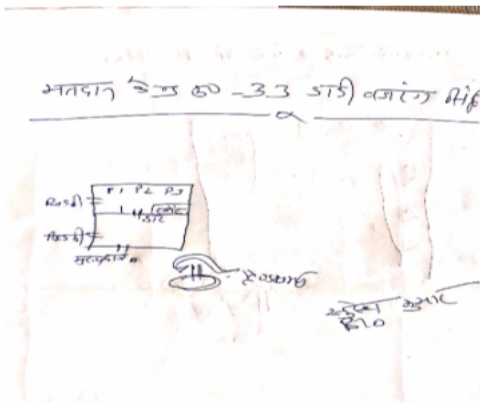 मतदान केन्द्र सं० -33 डांडी बजरंग
P1 P2 P3
खिड़की
द्वार
खिड़की
मुख्यद्वार
हैण्डपम्प
कुमार